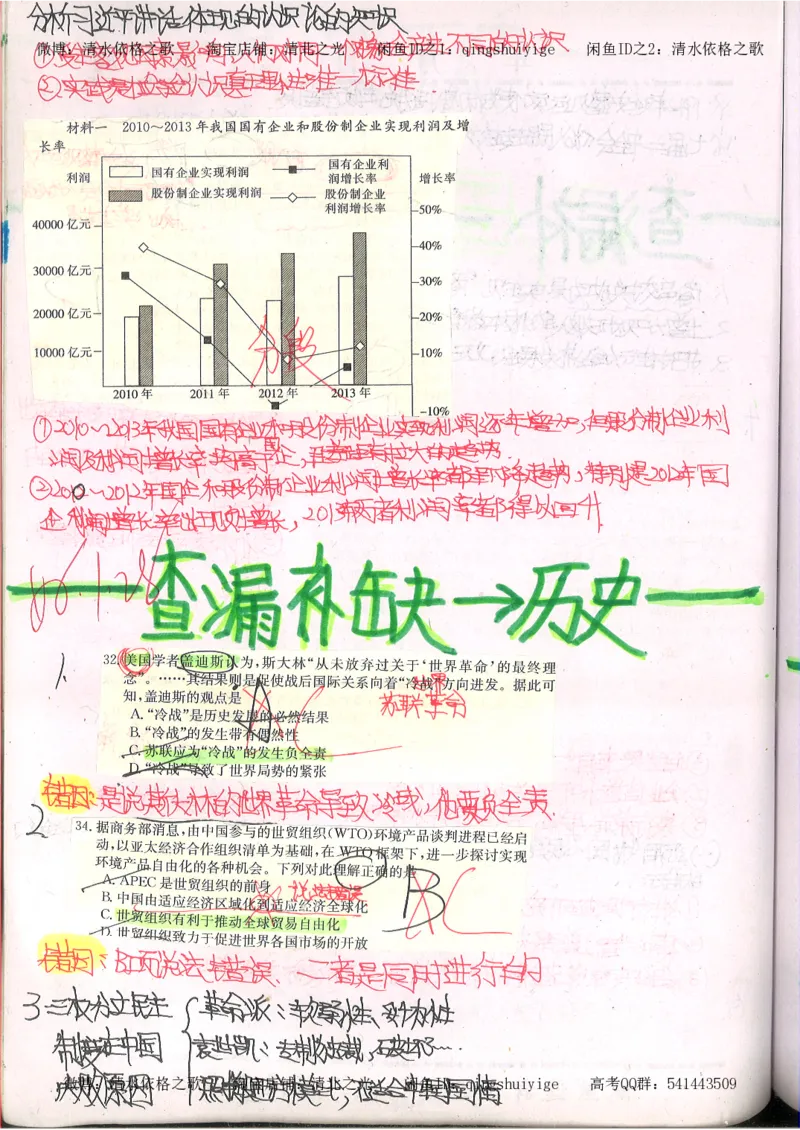 分析习近平讲话体现的认识论的知识
微博：清水依格之歌 淘宝店铺：清北之光 闲鱼ID之1：qingshuiyige 闲鱼ID之2：清水依格之歌
不同的认识
②实践是检验认识真理性的唯一标准
材料一 2010～2013年我国国有企业和股份制企业实现利润及增
长率
利润
国有企业实现利润
国有企业利
润增长率
增长率
股份制企业实现利润
股份制企业
利润增长率
50%
40000 亿元
40%
30000 亿元
30%
20000 亿元
20%
10000 亿元
10%
分段
2010 年 2011 年 2012 年 2013 年
-10%
①2010～2013年我国国有企业和股份制企业实现利润逐年增加，但股份制企业利
润及利润增长率均高于国企，且差距有拉大的趋势.
②2010～2012年国企和股份制企业利润增长率都呈下降趋势，特别是2012年国
企利润增长率出现负增长，2013年两者利润率都得以回升
查漏补缺→历史
1.
32. 美国学者盖迪斯认为，斯大林“从未放弃过关于‘世界革命’的最终理
念”。……其结果则是促使战后国际关系向着“冷战”方向进发。据此可
知，盖迪斯的观点是
A C
苏联革命
A. “冷战”是历史发展的必然结果
B. “冷战”的发生带有偶然性
C. 苏联应为“冷战”的发生负全责
D. “冷战”导致了世界局势的紧张
错因：是说斯大林的世界革命导致冷战，他要负全责.
2
34. 据商务部消息，由中国参与的世贸组织（WTO）环境产品谈判进程已经启
动，以亚太经济合作组织清单为基础，在 WTO 框架下，进一步探讨实现
环境产品自由化的各种机会。下列对此理解正确的是
B C
A. APEC 是世贸组织的前身
B. 中国由适应经济区域化到适应经济全球化
C. 世贸组织有利于推动全球贸易自由化
D. 世贸组织致力于促进世界各国市场的开放
错因：B项说法错误、二者是同时进行的
3.三权分立民主 革命派：软弱性、妥协性
制度在中国 袁世凯：专制独裁，破坏…
失败原因
微博：清水依格之歌 淘宝店铺：清北之光 闲鱼ID：qingshuiyige 高考QQ群：541443509